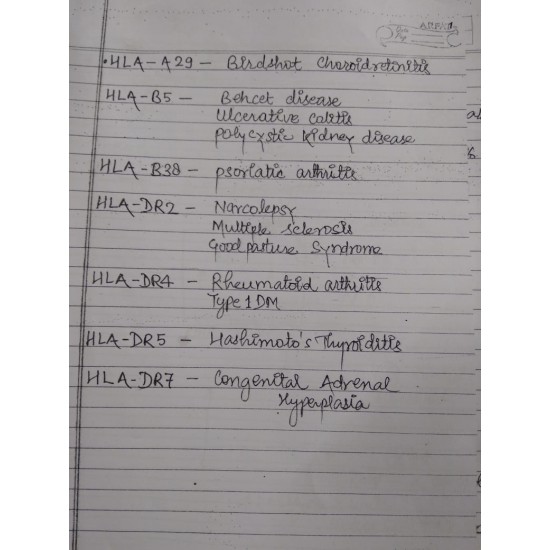 • HLA-A29 - Birdshot Choroidretinitis
HLA-B5 - Behcet disease
Ulcerative colitis
Polycystic kidney disease
HLA-B38 - psoriatic arthritis
HLA-DR2 - Narcolepsy
Multiple sclerosis
Good pasture Syndrome
HLA-DR4 - Rheumatoid arthritis
Type 1 DM
HLA-DR5 - Hashimoto's Thyroiditis
HLA-DR7 - Congenital Adrenal
Hyperplasia